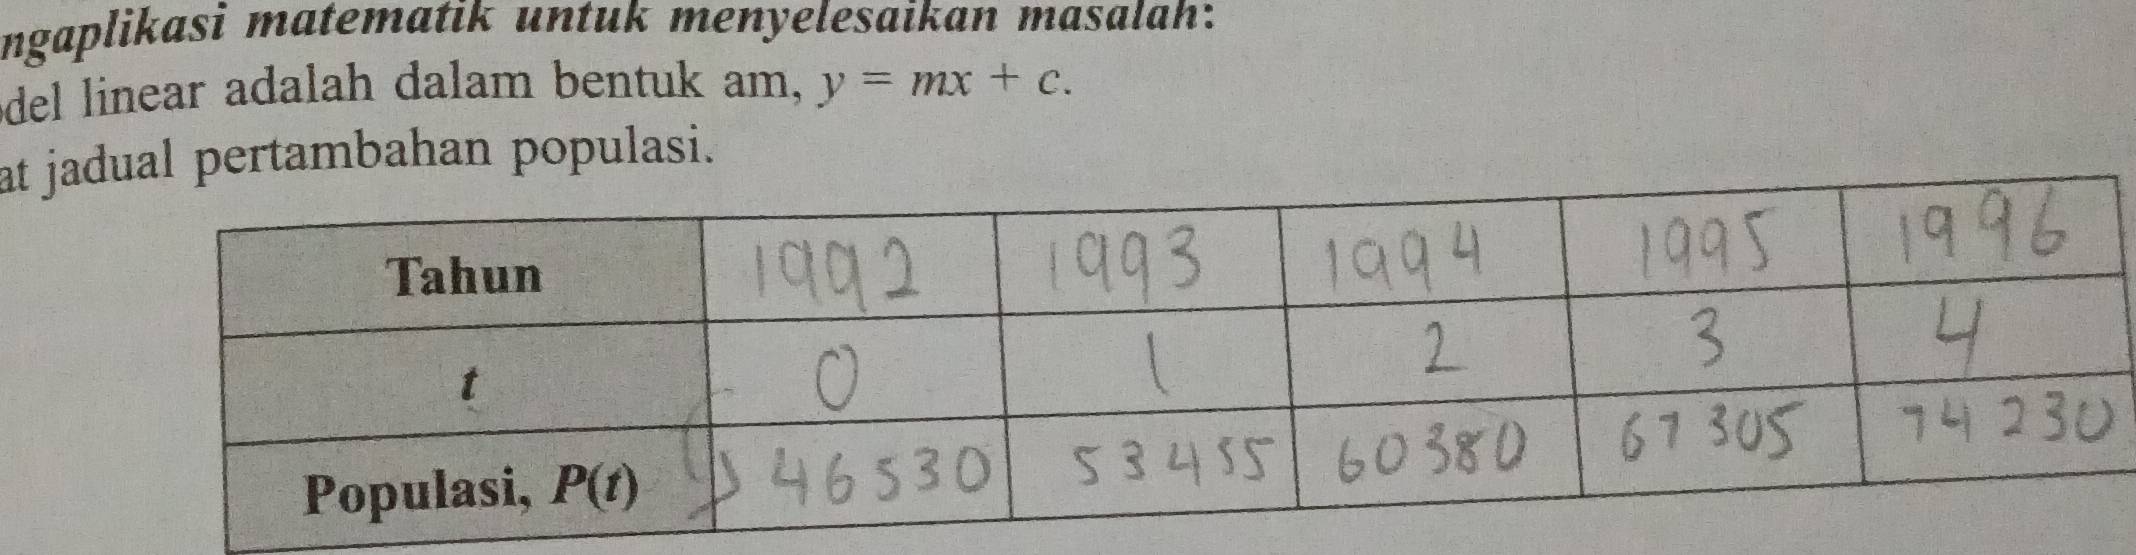 ngaplikasi matematik untuk menyelesaikan masalah:
del linear adalah dalam bentuk am, y = mx + c.
at jadual pertambahan populasi.
Tahun 1992 1993 1994 1995 1996
t 0 1 2 3 4
Populasi, P(t) 46530 53455 60380 67305 74230